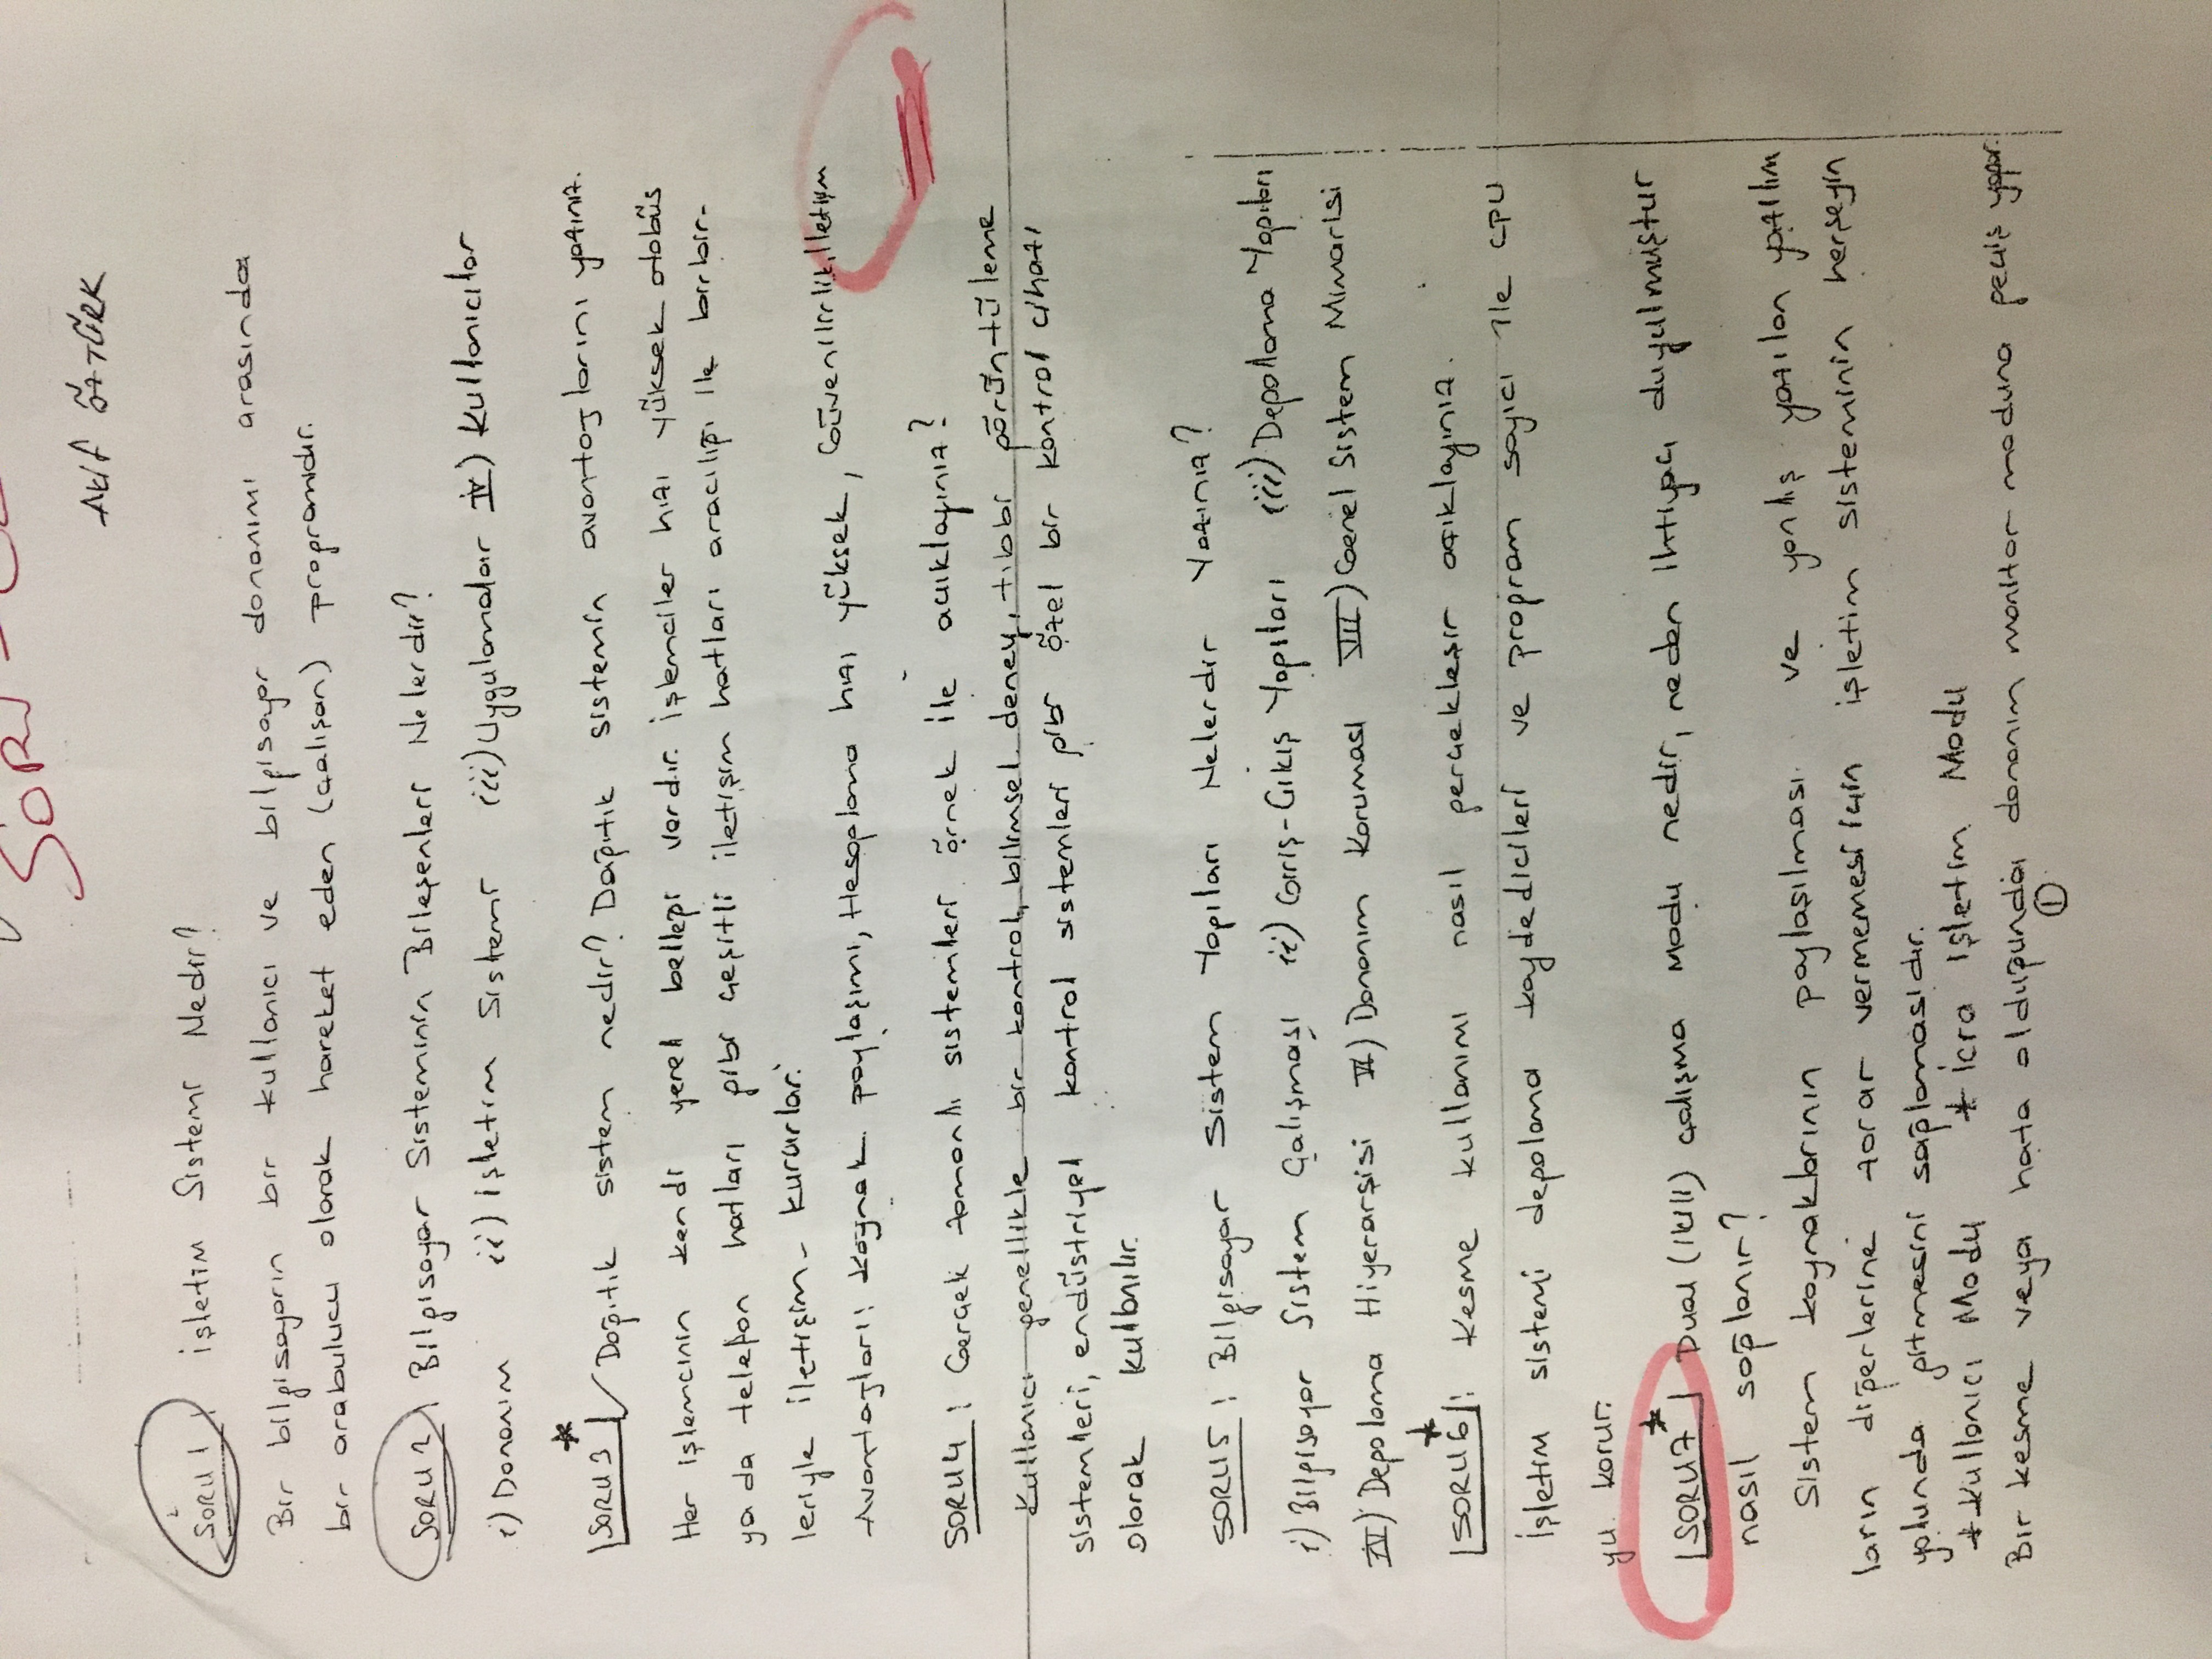 SORU-
AKİF ÖZTÜRK
SORU 1 : İşletim Sistemi Nedir?
Bir bilgisayarın bir kullanıcı ve bilgisayar donanımı arasında
bir arabulucu olarak hareket eden (çalışan) programıdır.
SORU 2 : Bilgisayar Sisteminin Bileşenleri Nelerdir?
i) Donanım ii) İşletim Sistemi iii) Uygulamalar IV) Kullanıcılar
SORU 3 * Dağıtık sistem nedir? Dağıtık sistemin avantajlarını yazınız.
Her işlemcinin kendi yerel belleği vardır. İşlemciler hızı yüksek otobüs
ya da telefon hatları gibi çeşitli iletişim hatları aracılığı ile birbir-
leriyle iletişim kurarlar.
Avantajları: Kaynak paylaşımı, Hesaplama hızı yüksek, Güvenilirlik, İletişim
SORU 4 : Gerçek zamanlı sistemleri örnek ile açıklayınız?
Kullanıcı genellikle bir kontrol, bilimsel deney, tıbbi görüntüleme
sistemleri, endüstriyel kontrol sistemleri gibi özel bir kontrol cihazı
olarak kullanılır.
SORU 5 : Bilgisayar Sistem Yapıları Nelerdir Yazınız?
i) Bilgisayar Sistem Çalışması ii) Giriş-Çıkış Yapıları iii) Depolama Yapıları
IV) Depolama Hiyerarşisi VI) Donanım Koruması VII) Genel Sistem Mimarisi
SORU 6 * : Kesme kullanımı nasıl gerçekleşir açıklayınız.
İşletim sistemi depolama kaydedicileri ve program sayıcı ile CPU
yu korur.
SORU 7 * Dual (İkili) çalışma modu nedir, neden ihtiyaç duyulmuştur
nasıl sağlanır?
Sistem kaynaklarının paylaşılması ve yanlış yazılan yazılım
ların diğerlerine zarar vermemesi için işletim sisteminin herşeyin
yolunda gitmesini sağlamasıdır.
* Kullanıcı Modu * İcra İşletim Modu
Bir kesme veya hata olduğunda donanım monitor moduna geçiş yapar.
1